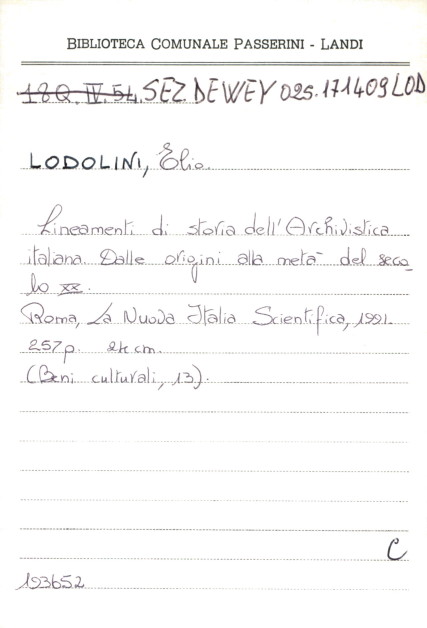 BIBLIOTECA COMUNALE PASSERINI - LANDI
18Q. IV. 54. SEZ DEWEY 025.171409 LOD
LODOLINI, Elio.
Lineamenti di storia dell'Archivistica
italiana. Dalle origini alla metà del seco_
lo XX.
Roma, La Nuova Italia Scientifica, 1991.
257 p. 24 cm.
(Beni culturali, 13).
C
193652